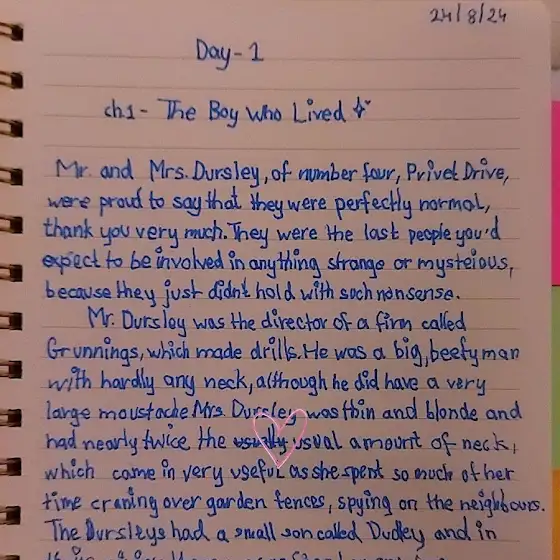 24/8/24
Day-1
ch1- The Boy Who Lived
Mr. and Mrs. Dursley, of number four, Privet Drive,
were proud to say that they were perfectly normal,
thank you very much. They were the last people you'd
expect to be involved in anything strange or mysteious,
because they just didn't hold with such nonsense.
Mr. Dursley was the director of a firm called
Grunnings, which made drills. He was a big, beefy man
with hardly any neck, although he did have a very
large moustache Mrs. Dursley was thin and blonde and
had nearly twice the usually usual amount of neck,
which came in very useful as she spent so much of her
time craning over garden fences, spying on the neighbours.
The Dursleys had a small son called Dudley and in